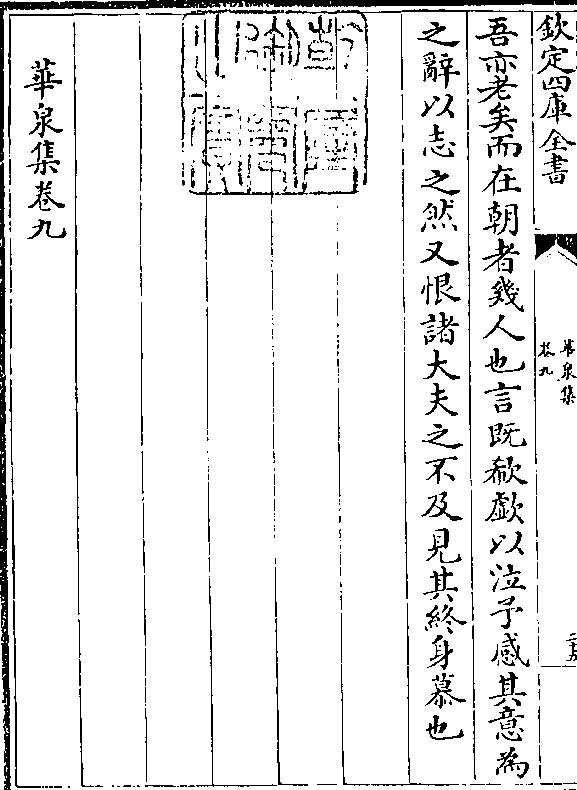 欽定四庫全書
華泉集
卷九
吾亦老矣而在朝者幾人也言既欷歔以泣予感其意為
之辭以志之然又恨諸大夫之不及見其終身慕也
華泉集卷九